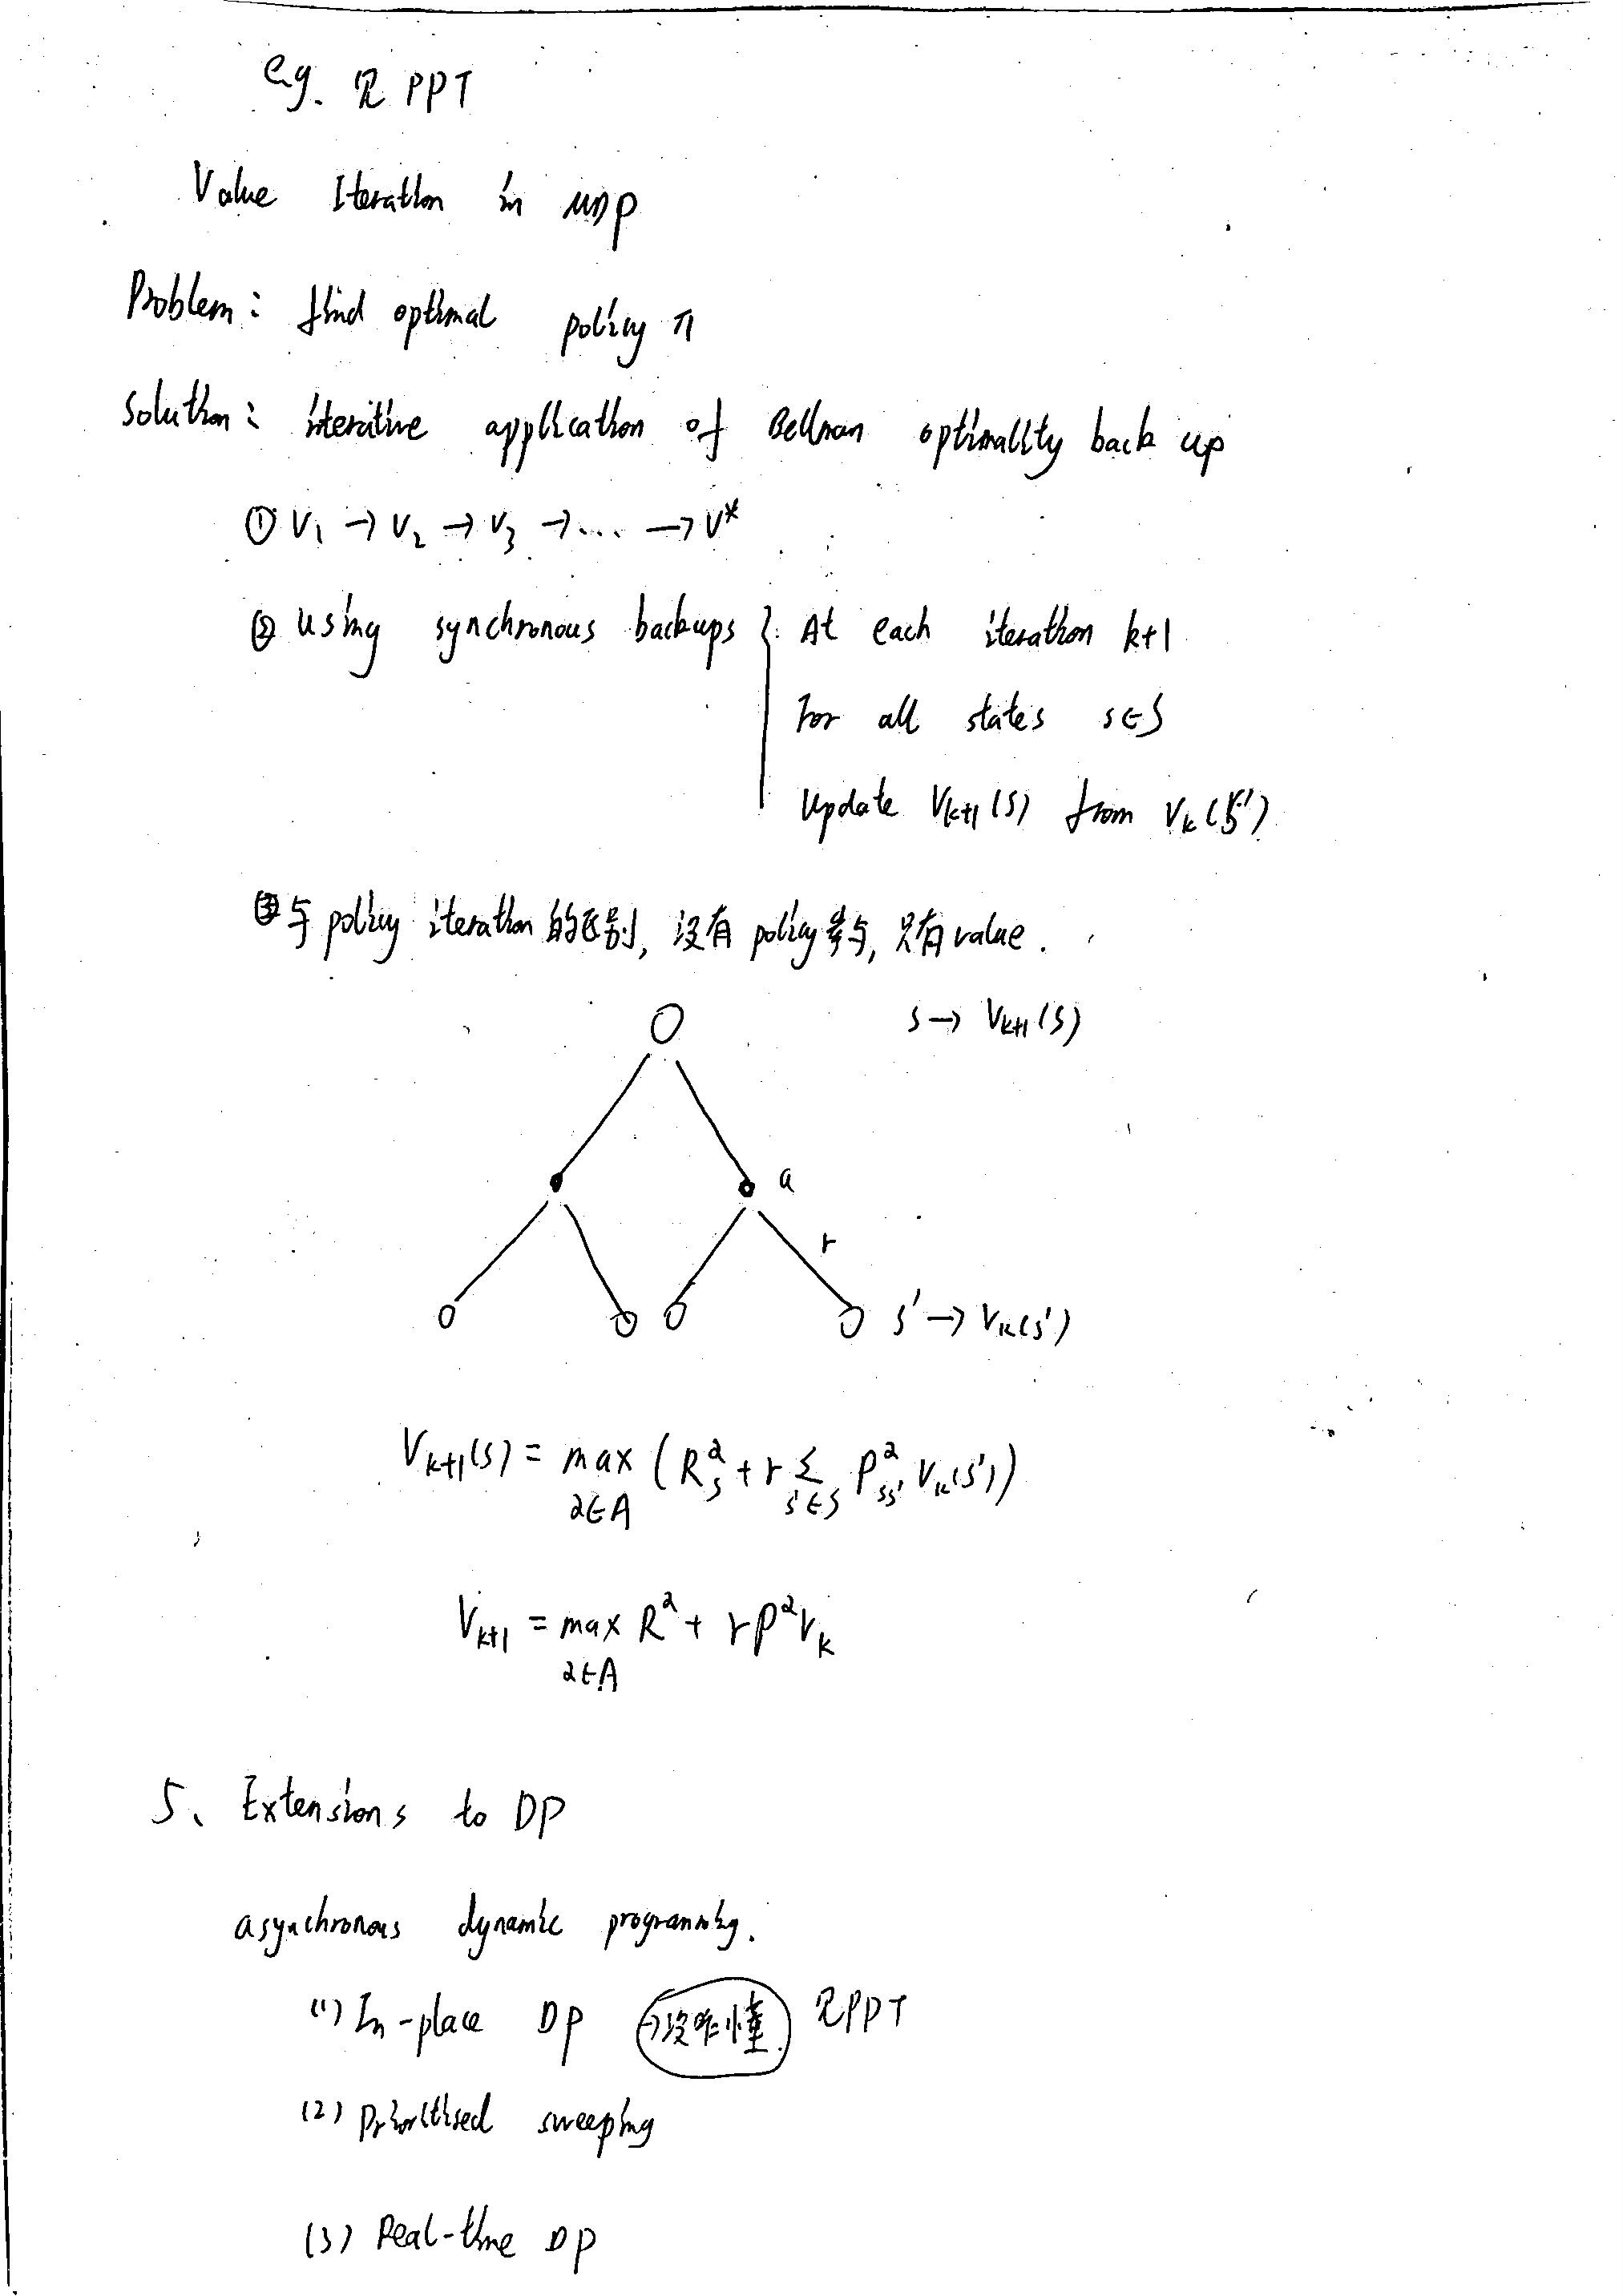 e.g. 见 PPT
Value Iteration in MDP
Problem: find optimal policy π
Solution: iterative application of Bellman optimality back up
① V₁ → V₂ → V₃ → ... → V*
② Using synchronous backups { At each iteration k+1
For all states s∈S
Update Vₖ₊₁(s) from Vₖ(s')
③ 与 policy iteration 的区别, 没有 policy 参与, 只有 value.
s → Vₖ₊₁(s)
a
r
s' → Vₖ(s')
Vₖ₊₁(s) = max (Rₛᵃ + r Σ Pₛₛ'ᵃ Vₖ(s'))
a∈A s'∈S
Vₖ₊₁ = max Rᵃ + rPᵃVₖ
a∈A
5、Extensions to DP
asynchronous dynamic programming.
(1) In-place DP →没咋懂. 见PPT
(2) Prioritised sweeping
(3) Real-time DP